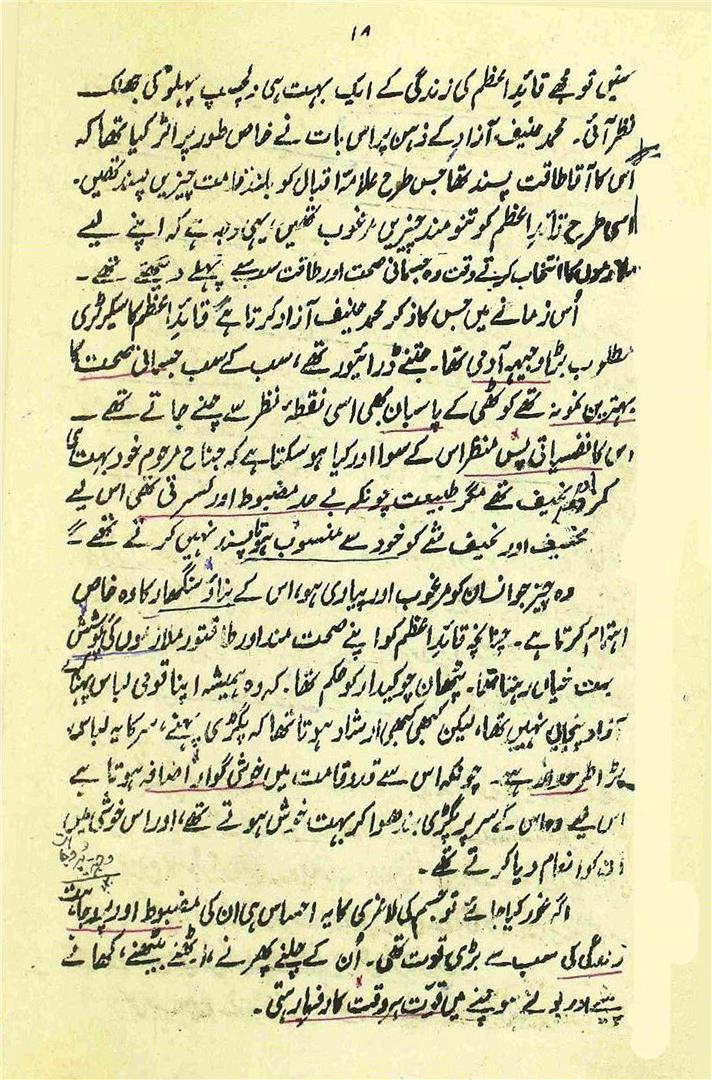 ۱۸
سنیں تو مجھے قائدِ اعظم کی زندگی کے ایک بہت ہی دلچسپ پہلو کی جھلک
نظر آئی۔ محمد حنیف آزاد کے ذہن پر اس بات نے خاص طور پر اثر کیا تھا کہ
اُس کا آقا طاقت پسند تھا جس طرح علامہ اقبال کو بلند قامت چیزیں پسند تھیں۔
اسی طرح قائدِ اعظم کو تنومند چیزیں مرغوب تھیں، یہی وجہ ہے کہ اپنے لیے
ملازموں کا انتخاب کرتے وقت وہ جسمانی صحت اور طاقت سب سے پہلے دیکھتے تھے۔
اُس زمانے میں جس کا ذکر محمد حنیف آزاد کرتا ہے قائدِ اعظم کا سیکرٹری
مطلوب بڑا وجیہہ آدمی تھا۔ جتنے ڈرائیور تھے، سب کے سب جسمانی صحت کا
بہترین نمونہ تھے کوٹھی کے پاسبان بھی اسی نقطۂ نظر سے چنے جاتے تھے۔
اس کا نفسیاتی پس منظر اس کے سوا اور کیا ہو سکتا ہے کہ جناح مرحوم خود بہت ہی
نحیف تھے مگر طبیعت چونکہ بے حد مضبوط اور کسرتی تھی اس لیے
اور نحیف شے کو خود سے منسوب ہوتا پسند نہیں کرتے تھے۔
وہ چیز جو انسان کو مرغوب اور پیاری ہو، اس کے بناؤ سنگھار کا وہ خاص
اہتمام کرتا ہے۔ چنانچہ قائدِ اعظم کو اپنے صحت مند اور طاقتور ملازموں کی پوشش
بہت خیال رہتا تھا۔ پٹھان چوکیدار کو حکم تھا۔ کہ وہ ہمیشہ اپنا قومی لباس پہنا کرے
آزاد پنجابی نہیں تھا، لیکن کبھی کبھی ارشاد ہوتا تھا کہ پگڑی پہنے، سر کا یہ لباس،
بڑا طرحدار ہے۔ چونکہ اس سے قد و قامت میں خوش گوار اضافہ ہوتا ہے
اس لیے وہ اس کے سر پر پگڑی بندھوا کر بہت خوش ہوتے تھے، اور اس خوشی میں
اس کو انعام دیا کرتے تھے۔
اگر غور کیا جائے تو جسم کی لاغری کا یہ احساس ہی ان کی مضبوط اور پر وجاہت
زندگی کی سب سے بڑی قوت تھی۔ اُن کے چلنے پھرنے، اٹھنے بیٹھنے، کھانے
پینے اور بولنے سوچنے میں قوت ہر وقت کارفرما رہتی۔